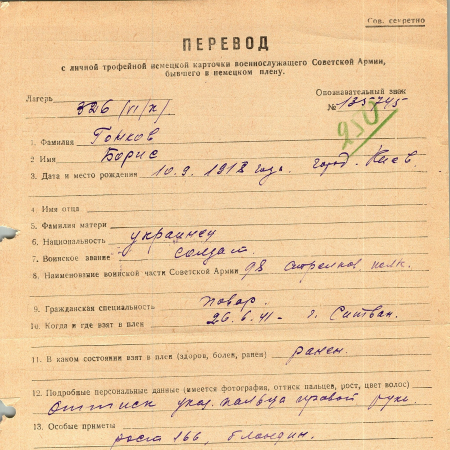 Сов. секретно
ПЕРЕВОД
с личной трофейной немецкой карточки военнослужащего Советской Армии,
бывшего в немецком плену.
Лагерь 326 /VI/К/
Опознавательный знак
№ 135745
250
1. Фамилия
2. Имя Борис
3. Дата и место рождения 10.9.1918 года. город. Киев.
4. Имя отца
5. Фамилия матери
6. Национальность украинец
7. Воинское звание солдат
8. Наименование воинской части Советской Армии 98 стрелков полк.
9. Гражданская специальность повар.
10. Когда и где взят в плен 26.6.41 - г.
11. В каком состоянии взят в плен (здоров, болен, ранен) ранен.
12. Подробные персональные данные (имеется фотография, оттиск пальцев, рост, цвет волос)
оттиск указ. пальца правой руки.
13. Особые приметы
роста 166, блондин.